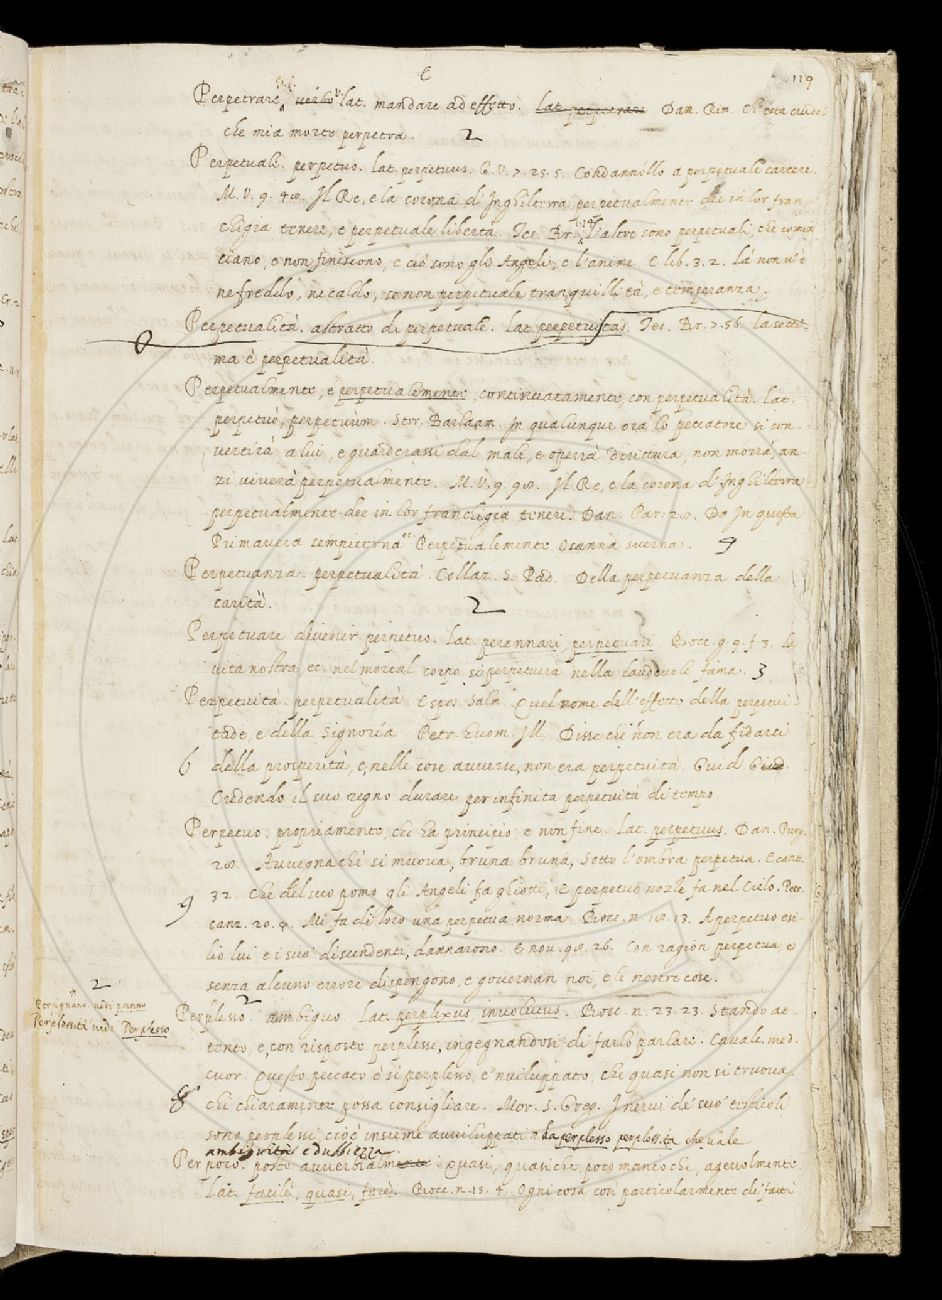 E
119
Perpetrare, verbo lat. mandare ad effetto. Lat. perpetrare Dan. Rim.
che mia morte perpetra. 2
Perpetuale. perpetuo. Lat. perpetuus. G. V. 7. 25. 5. Condannollo a perpetuale carcere.
M. V. 9. 98. Il Re, e la corona d'Inghilterra perpetualmente dee in lor fran
chigia tenere, e perpetuale libertà. Tes. Br. L'altre sono perpetuali, che comin
ciano, e non finiscono, e ciò sono gli Angeli, e l'anime E lib. 3. 2. Là non v'è
ne freddo, ne caldo, se non perpetuale tranquillità, e temperanza.
Perpetualità. astratto di perpetuale. Lat. perpetuitas. Tes. Br. 7. 56. La setti-
ma è perpetualità.
Perpetualmente, e perpetualemente, continuatamente, con perpetualità. Lat.
perpetuò, perpetuùm. Stor. Barlaam. In qualunque ora lo peccatore si con-
vertirà a lui, e guarderassi dal male, e operrà dirittura, non morrà, an-
zi viverà perpetualmente. M. V. 9. 98. Il Re, e la corona d'Inghilterra
perpetualmente dee in lor franchigia tenere. Dan. Par. 28. Do In questa
Primavera sempiterna et Perpetualemente Osanna sverna. 9
Perpetuanza. perpetualità. Collaz. S. Pad. Della perpetuanza della
carità.
2
Perpetuare divenir perpetuo. Lat. perennari, perpetuari Bocc. g. 9. f. 3. La
vita nostra, ec. nel mortal corpo si perpetuerà nella laudevole fama. 3
Perpetuità. perpetualità Espos. Salm. Quel nome dell'effetto della perpetui
tade, e della Signoria Petr. Huom. Ill. Disse che non era da fidarsi
6 della prosperità, e, nelle cose avverse, non era perpetuità. Guid. Giud.
Credendo il suo regno durare per infinita perpetuità di tempo.
Perpetuo, propriamente, che ha principio, e non fine. Lat. perpetuus. Dan. Purg.
28. Avvegna che si muova, bruna bruna, Sotto l'ombra perpetua. E cant.
9 32. Che del suo pomo gli Angeli fa ghiotti, E perpetue nozze fa nel Cielo. Petr.
canz. 20. 4. Mi fa di loro una perpetua norma Bocc. n. 18. 13. A perpetuo esi-
lio lui, e i suo' discendenti, dannarono. E nov. 98. 26. Con ragion perpetua, e
senza alcuno errore dispongono, e governan noi, e le nostre cose.
2
Perpignano. vedi panno
Perplessità vedi Perplesso
2
Perplesso. ambiguo. Lat. perplexus, involutus. Bocc. n. 23. 23. Stando at-
tento, e, con risposte perplesse, ingegnandosi di farlo parlare. Cavalc. med.
cuor. Questo peccato è sì perplesso, e 'nviluppato, che quasi non si truova
8 chi chiaramente possa consigliare. Mor. S. Greg. I nervi de' suo' testicoli
sono perplessi cioè insieme avviluppati. Da perplesso perplessità che vale
ambiguità e dubbiezza.
Per poco. posto avverbialmente: Quasi, quasi che, poco manco che, agevolmente.
Lat. facilè, quasi, ferè. Bocc. n. 15. 4. Ogni cosa così particolarmente de' fatti